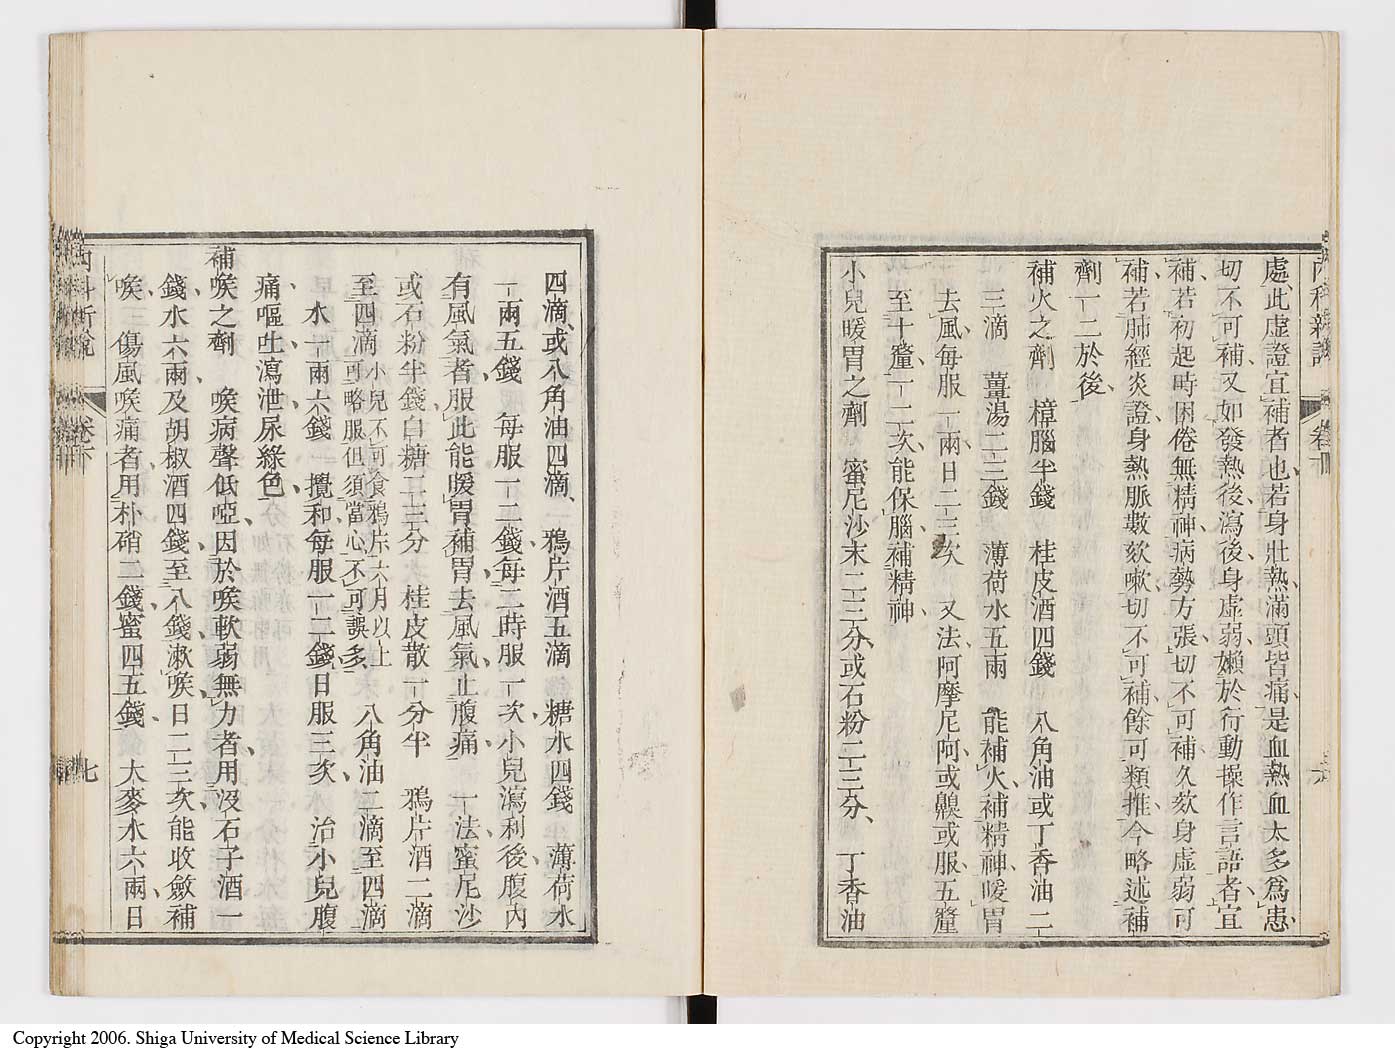 內科新說
卷下
六
處、此虛證宜補者也、若身壯熱滿頭皆痛、是血熱血太多爲患、
切不可補、又如發熱後、瀉後、身虛弱、嬾於行動操作言語者、宜
補、若初起時困倦無精神、病勢方張、切不可補、久欬身虛弱可
補、若肺經炎證、身熱脈數欬嗽、切不可補、餘可類推、今略述補
劑一二於後、
補火之劑 樟腦半錢 桂皮酒四錢 八角油或丁香油二
三滴 薑湯二三錢 薄荷水五兩 能補火、補精神、暖胃
去風、每服一兩、日二三次 又法、阿摩尼阿、或齅或服、五釐
至十釐、一二次、能保腦、補精神、
小兒暖胃之劑 蜜尼沙末二三分、或石粉二三分、 丁香油
四滴、或八角油四滴、 鴉片酒五滴 糖水四錢 薄荷水
一兩五錢 每服一二錢、每二時服一次、小兒瀉利後、腹內
有風氣者服此、能暖胃補胃、去風氣、止腹痛、 一法、蜜尼沙
或石粉半錢、白糖二三分 桂皮散一分半 鴉片酒二滴
至四滴 小兒不可食鴉片六月以上
可略服但須當心不可誤多 八角油二滴至四滴
水一兩六錢 攪和每服一二錢、日服三次、 治小兒腹
痛嘔吐瀉泄尿綠色、
補喉之劑 喉病聲低啞、因於喉軟弱無力者、用沒石子酒一
錢、水六兩、及胡椒酒四錢至八錢、漱喉日二三次、能收斂補
喉、 傷風喉痛者、用朴硝二錢、蜜四五錢、 大麥水六兩、日
內科新說
卷下
七
Copyright 2006. Shiga University of Medical Science Library